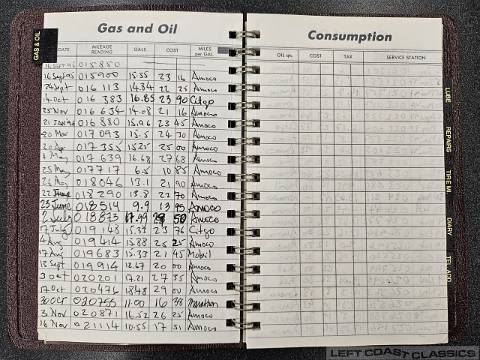 Gas and Oil
DATE MILEAGE READING GALS COST MILES per GAL
015850
16 Sept 95 015900 15.55 23 16 Amoco
24 Sept 016 113 14.34 22 25 Amoco
14 Oct 016 383 16.85 23 90 Citgo
25 Nov 016 634 14.08 21 16 Amoco
016 880 15.96 23 45 Amoco
20 Mar 017 093 15.5 24 70 Amoco
017 355 15.25 25 00 Amoco
017 639 16.68 27 68 Amoco
017 717 6.5 10 85 Amoco
018 046 13.1 21 90 Amoco
22 June 018 290 13.8 22 70 Amoco
23 June 018 514 9.9 13 95 Amoco
2 July 018 873 50 Amoco
17 July 019 148 15.22 23 76 Citgo
4 Aug 019 414 15.88 25 25 Amoco
17 Aug 019 683 15.33 21 45 Mobil
13 Sept 019 914 12.67 20 00 Amoco
3 Oct 020 201 17.21 27 35 Amoco
17 Oct 020 476 18.48 29 00 Amoco
30 Oct 020 755 11.00 16 38 Marathon
3 Nov 020 871 16.52 26 25 Amoco
16 Nov 021 114 10.55 17 51 Amoco
Consumption
OIL qts. COST TAX SERVICE STATION
GAS & OIL
LUBE
REPAIRS
TIRE MI
DIARY
LEFT COAST CLASSICS